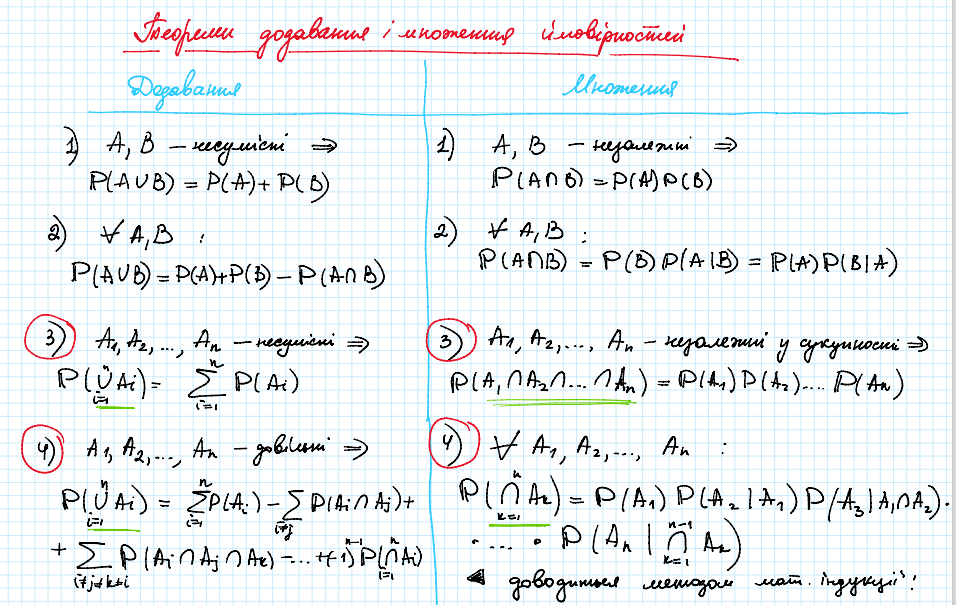 Теореми додавання і множення ймовірностей
Додавання
1) A, B – несумісні ⇒
P(A∪B) = P(A) + P(B)
2) ∀ A, B :
P(A∪B) = P(A)+P(B) – P(A∩B)
3) A₁, A₂, ..., Aₙ – несумісні ⇒
P(⋃ᵢ₌₁ⁿ Aᵢ) = ∑ᵢ₌₁ⁿ P(Aᵢ)
4) A₁, A₂, ..., Aₙ – довільні ⇒
P(⋃ᵢ₌₁ⁿ Aᵢ) = ∑ᵢ₌₁ⁿ P(Aᵢ) – ∑_{i≠j} P(Aᵢ∩Aⱼ) +
+ ∑_{i≠j≠k≠i} P(Aᵢ∩Aⱼ∩Aₖ) – ... +(-1)ⁿ⁻¹ P(⋂ᵢ₌₁ⁿ Aᵢ)
Множення
1) A, B – незалежні ⇒
P(A∩B) = P(A)P(B)
2) ∀ A, B :
P(A∩B) = P(B)P(A|B) = P(A)P(B|A)
3) A₁, A₂, ..., Aₙ – незалежні у сукупності ⇒
P(A₁∩A₂∩...∩Aₙ) = P(A₁)P(A₂)....P(Aₙ)
4) ∀ A₁, A₂, ..., Aₙ :
P(⋂ₖ₌₁ⁿ Aₖ) = P(A₁)P(A₂|A₁)P(A₃|A₁∩A₂)·
· ... · P(Aₙ | ⋂ₖ₌₁ⁿ⁻¹ Aₖ)
◀ доводиться методом мат. індукції!